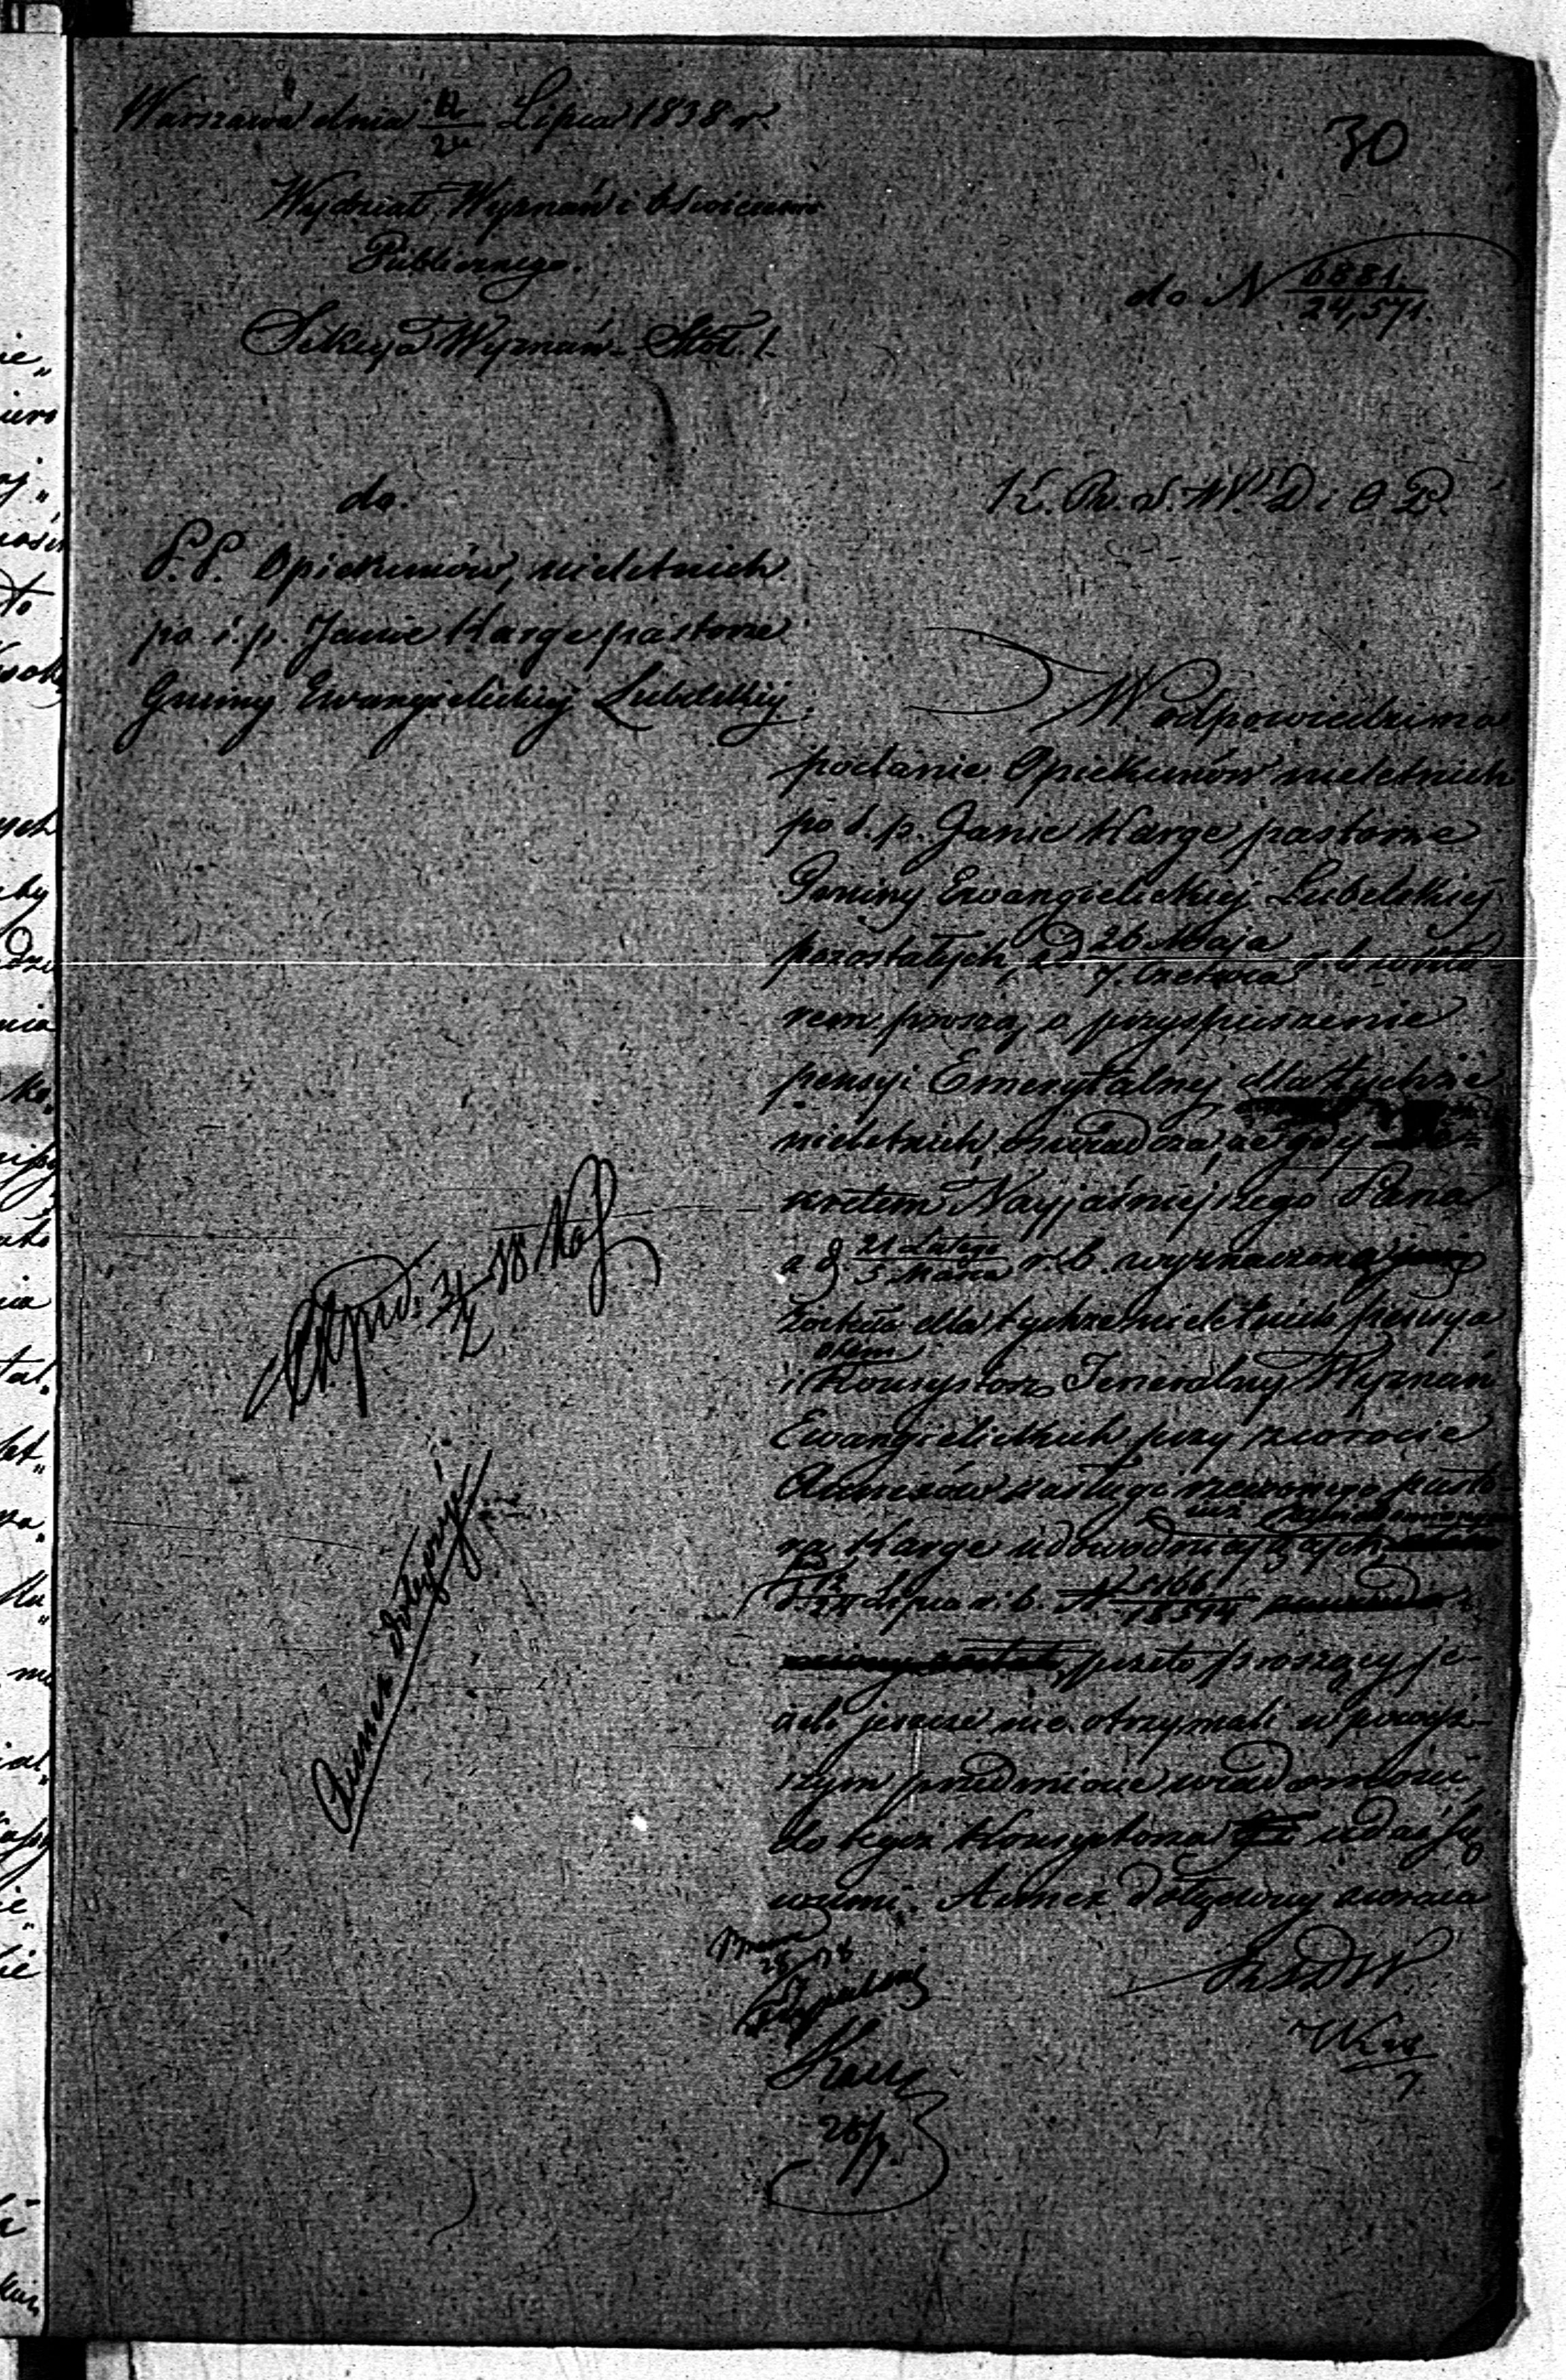 Warszawa dnia 12/24 Lipca 1838 r.
30
Wydział Wyznań i Oświecenia
Publicznego.
do N 6881/24,571.
Sekcya Wyznań Stoł. 1.
K. R. S. W. D. i O. P.
do.
P. P. Opiekunów, nieletnich
po ś. p. Janie Karge pastorze
Gminy Ewangielickiej Lubelskiej.
W odpowiedzi na
podanie Opiekunów nieletnich
po ś. p. Janie Karge pastorze
Gminy Ewangielickiej Lubelskiej
pozostałych, z d. 26 Maja/7. Czerwca r. b. w któ
rem proszą o przyspieszenie
pensyi Emerytalnej dla tychże
nieletnich, oświadcza, że gdy
kretem Nayjaśniejszego Pana
z d. 21 Lutego/5 Marca r. b. wyznaczoną
została dla tychże nieletnich pensya
o tem
i Konsystorz Jeneralny Wyznań
Ewangielickich przy zwrocie
Annexów zasługi rzeczonego pasto
ra Karge udowodniających
już
d. 12/24 Lipca r. b. N 5166/18394
przeto proszący je-
żeli jeszcze nie otrzymali w powyż-
szym przedmiocie wiadomości,
do tegoż Konsystorza udać się
winni. Annex dołączony zwraca
Exped. 31/7 38
Annex dołączony
26/7.